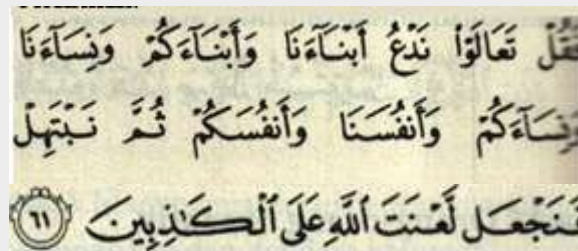 فَقُلْ تَعَالَوْا۟ نَدْعُ أَبْنَآءَنَا وَأَبْنَآءَكُمْ وَنِسَآءَنَا
وَنِسَآءَكُمْ وَأَنفُسَنَا وَأَنفُسَكُمْ ثُمَّ نَبْتَهِلْ
فَنَجْعَل لَّعْنَتَ ٱللَّهِ عَلَى ٱلْكَـٰذِبِينَ ٦١